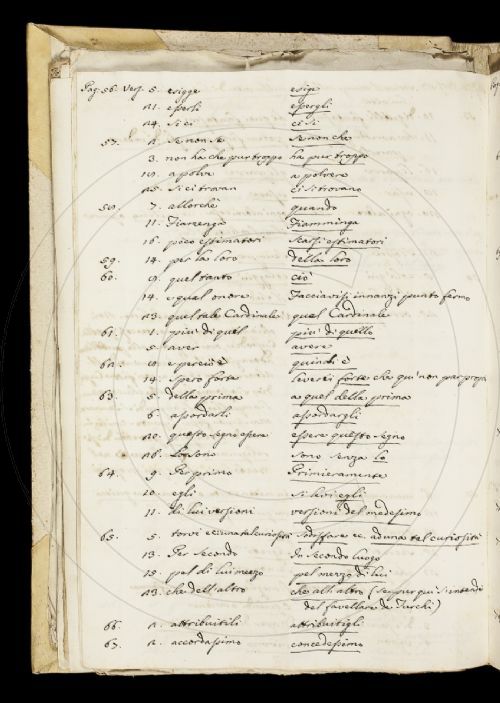 Pag. 56. Vers. 5. esigge esige
21. esperli espergli
24. si ci ci si
57. 2. se non se se non che
3. non ha che pur troppo ha pur troppo
20. a polve a polvere
25. si ci trovan ci si trovano
58. 7. allorchè quando
11. Fiamenga Fiamminga
16. poco estimatori scarsi estimatori
59. 14. per la loro della loro
60. 9. quel tanto ciò
14. egual onore Facciavisi innanzi punto fermo
23. quel tale Cardinale quel Cardinale
61. 1. piu' di quel piu' di quello
5. aver avere
62. e perciò è quindi è
14. spero forte forte che qui non par
63. 5. della prima a quel della prima
6. assordarli assordargli
20. questo segni essere essere questo segno
26. sono senza lo
64. 9. Per primo Primieramente
10. egli si levi egli
11. di lui versioni versioni del medesimo
65. 5. ec. ad una tal curiosità
13. Per secondo In secondo luogo
15. pel di lui mezzo pel mezzo di lui
23. che dell'altro che all'altro (sempre qui s'intende
del favellare de' Turchi)
66. 2. attribuitili attribuitigli
67. 2. accordassimo concedessimo